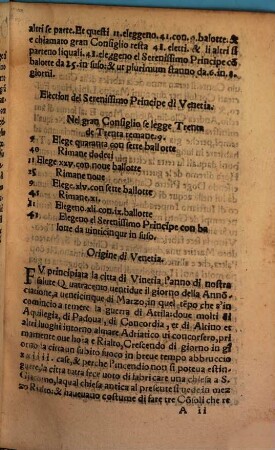 altri se parte. Et questi 11. eleggeno. 41. con. 9. balotte. &
e chiamato gran Consiglio resta 48. eletti. & li altri si
parteno liquali. 41. eleggeno el Serenissimo Principe cõ
balotte da 25. in suso: & ut plurimum stanno da 6. in. 8.
giorni.
Election del Serenissimo Principe di Venetia.
Nel gran Consiglio se legge Trenta
de Trenta remane. 9.
Elege quaranta con sette ballotte
Rimane dodeci
Elege xxv. con noue ballotte
Rimane noue
Elege xlv. con sette ballotte
Rimane. xi.
Elegeno. xli. con. ix. ballotte
Elegeno el Serenissimo Principe con ba
lotte da uinticinque in suso.
Origine di Venetia.
FV principiata la citta di Vinetia, l'anno di nostra
salute Quatraceno ventidue il giorno della Annõ
ciatione, a uenticinque di Marzo, in quel tẽpo che s'in
comincio a temere la guerra di Attila: doue molti di
Aquilegia, di Padoua, di Concordia, et di Altino et
altri luoghi intorno al mare Adriatico ui concorsero, pri
mamente oue hora e Rialto, Crescendo di giorno in gi
orno la citta un subito fuoco in breue tempo abbruccio
case, & perche l'incendio non si poteua estin
guere, la citta tutta fece uoto di fabricare una chiesa a S.
Giacomo, laqual chiesa antica al presente si uede in mezo
Rialto; & haueuano costume di fare tre Cõsoli che re
A ii